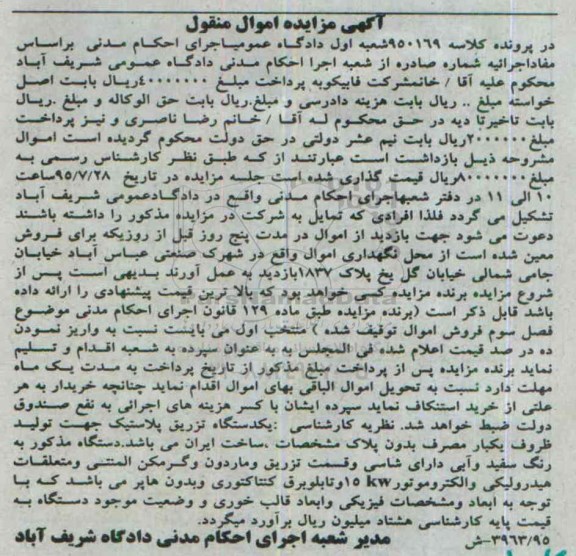 آگهی مزایده اموال منقول
در پرونده کلاسه ۹۵۰۱۶۹شعبه اول دادگاه عمومیاجرای احکام مدنی براساس
مفاداجرائیه شماره صادره از شعبه اجرا احکام مدنی دادگاه عمومی شریف آباد
محکوم علیه آقا / خانمشرکت فابیکوبه پرداخت مبلغ ۴۰۰۰۰۰۰۰ریال بابت اصل
خواسته مبلغ .. ریال بابت هزینه دادرسی و مبلغ.ریال بابت حق الوکاله و مبلغ .ریال
بابت تاخیرتا دیه در حق محکوم له آقا / خانم رضا ناصری و نیز پرداخت
مبلغ۲۰۰۰۰۰۰ریال بابت نیم عشر دولتی در حق دولت محکوم گردیده است اموال
مشروحه ذیل بازداشت است عبارتند از که طبق نظر کارشناس رسمی به
مبلغ۸۰۰۰۰۰۰۰ریال قیمت گذاری شده است جلسه مزایده در تاریخ ۹۵/۷/۲۸ساعت
۱۰ الی ۱۱ در دفتر شعبهاجرای احکام مدنی واقع در دادگاهعمومی شریف آباد
تشکیل می گردد فلذا افرادی که تمایل به شرکت در مزایده مذکور را داشته باشند
دعوت می شود جهت بازدید از اموال در مدت پنج روز قبل از روزیکه برای فروش
معین شده است از محل نگهداری اموال واقع در شهرک صنعتی عباس آباد خیابان
جامی شمالی خیابان گل یخ پلاک ۱۸۳۷بازدید به عمل آورند بدیهی است پس از
شروع مزایده برنده مزایده کسی خواهد بود که بالا ترین قیمت پیشنهادی را ارائه داده
باشد قابل ذکر است (برنده مزایده طبق ماده ۱۲۹ قانون اجرای احکام مدنی موضوع
فصل سوم فروش اموال توقیف شده ) منتخب اول می بایست نسبت به واریز نمودن
ده در صد قیمت اعلام شده فی المجلس به به عنوان سپرده به شعبه اقدام و تسلیم
نماید برنده مزایده پس از پرداخت مبلغ مذکور از تاریخ پرداخت به مدت یک ماه
مهلت دارد نسبت به تحویل اموال الباقی بهای اموال اقدام نماید چنانچه خریدار به هر
علتی از خرید استنکاف نماید سپرده ایشان با کسر هزینه های اجرائی به نفع صندوق
دولت ضبط خواهد شد. نظریه کارشناسی :یکدستگاه تزریق پلاستیک جهت تولید
ظروف یکبار مصرف بدون پلاک مشخصات .ساخت ایران می باشد.دستگاه مذکور به
رنگ سفید وآبی دارای شاسی وقسمت تزریق وماردون وگرمکن المنتی ومتعلقات
هیدرولیکی والکتروموتور۱۵ kwوتابلوبرق کنتاکتوری وبدون هاپر می باشد که با
توجه به ابعاد ومشخصات فیزیکی وابعاد قالب خوری و وضعیت موجود دستگاه به
قیمت پایه کارشناسی هشتاد میلیون ریال برآورد میگردد.
۳۹۶۳/۹۵-ش مدیر شعبه اجرای احکام مدنی دادگاه شریف آباد